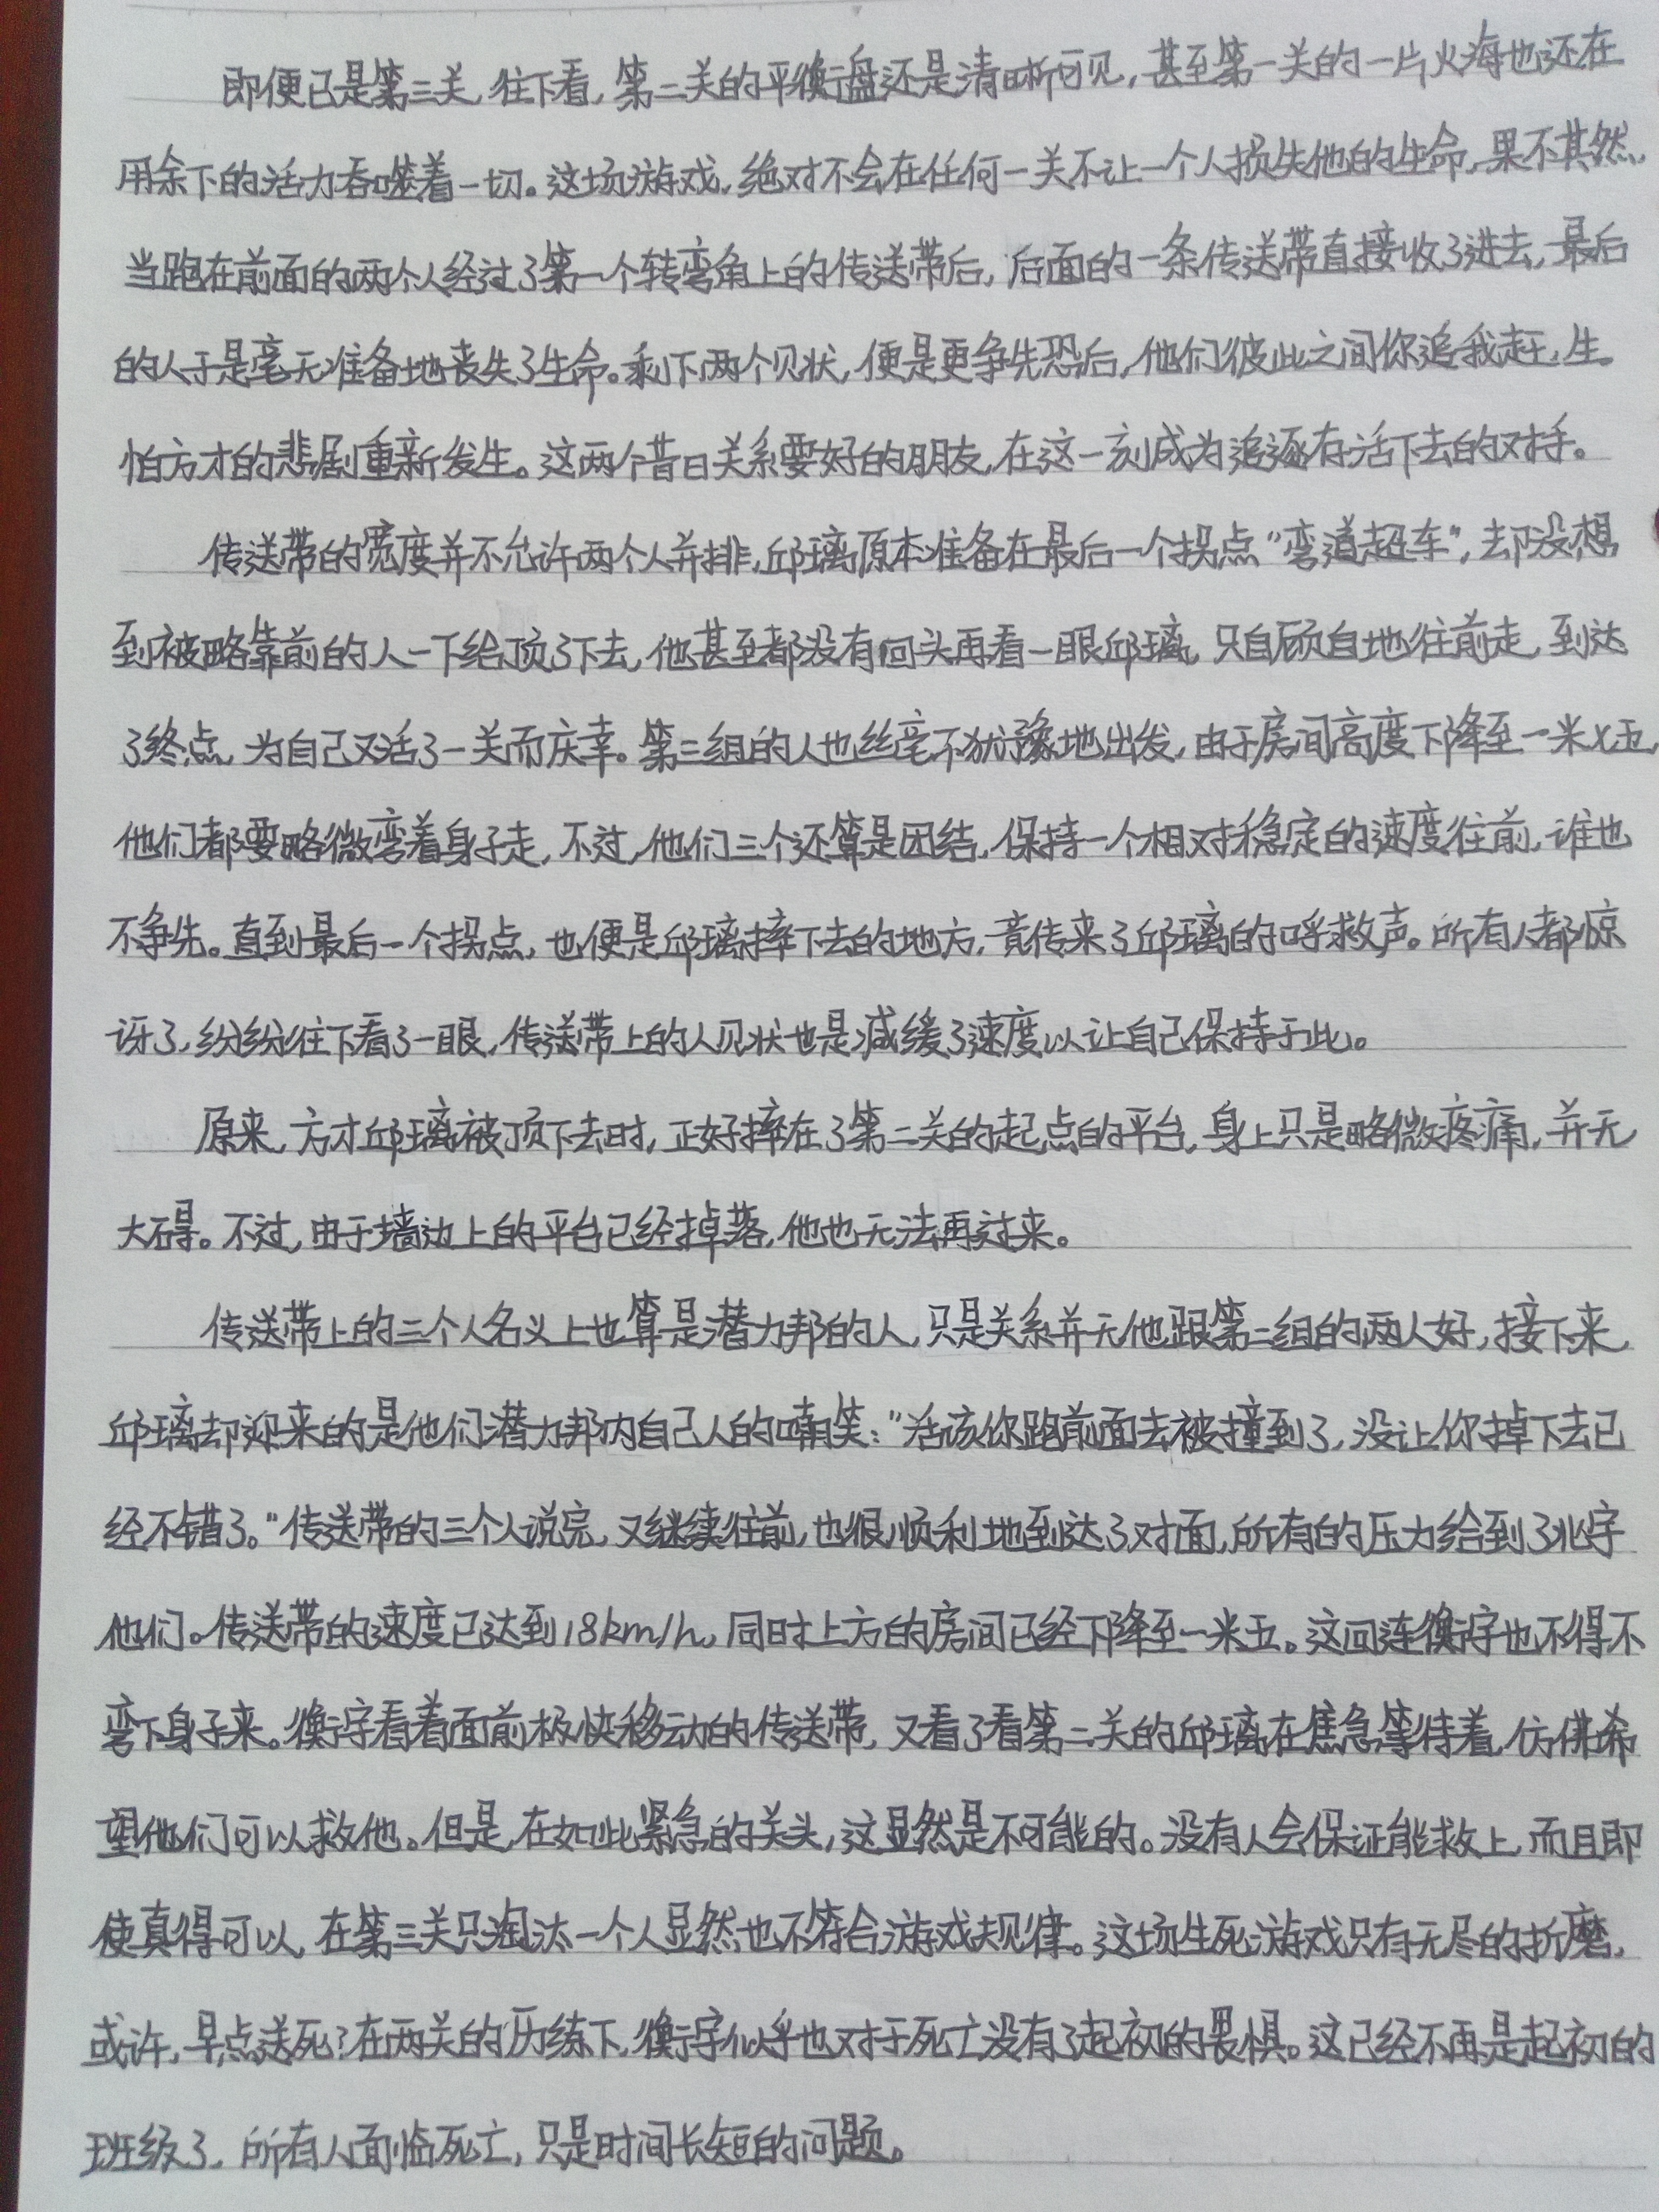 即便已是第三关，往下看，第二关的平衡盘还是清晰可见，甚至第一关的一片火海也还在
用余下的活力吞噬着一切。这场游戏，绝对不会在任何一关不让一个人损失他的生命，果不其然，
当跑在前面的两个人经过了第一个转弯角上的传送带后，后面的一条传送带直接收了进去，最后
的人于是毫无准备地丧失了生命。剩下两个见状，便是更争先恐后，他们彼此之间你追我赶，生
怕方才的悲剧重新发生。这两个昔日关系要好的朋友，在这一刻成为追逐存活下去的对手。
传送带的宽度并不允许两个人并排，邱璃原本准备在最后一个拐点“弯道超车”，却没想
到被略靠前的人一下给顶了下去，他甚至都没有回头再看一眼邱璃，只自顾自地往前走，到达
了终点，为自己又活了一关而庆幸。第三组的人也丝毫不犹豫地出发，由于房间高度下降至一米七五，
他们都要略微弯着身子走，不过，他们三个还算是团结，保持一个相对稳定的速度往前，谁也
不争先。直到最后一个拐点，也便是邱璃摔下去的地方，竟传来了邱璃的呼救声。所有人都惊
讶了，纷纷往下看了一眼，传送带上的人见状也是减缓了速度以让自己保持于此。
原来，方才邱璃被顶下去时，正好摔在了第二关的起点的平台，身上只是略微疼痛，并无
大碍。不过，由于墙边上的平台已经掉落，他也无法再过来。
传送带上的三个人名义上也算是潜力邦的人，只是关系并无他跟第二组的两人好，接下来，
邱璃却迎来的是他们潜力邦内自己人的嘲笑：“活该你跑前面去被撞到了，没让你掉下去已
经不错了。”传送带的三个人说完，又继续往前，也很顺利地到达了对面，所有的压力给到了兆宇
他们。传送带的速度已达到18km/h，同时上方的房间已经下降至一米五。这回连衡宇也不得不
弯下身子来。衡宇看着面前极快移动的传送带，又看了看第二关的邱璃在焦急等待着，仿佛希
望他们可以救他。但是，在如此紧急的关头，这显然是不可能的。没有人会保证能救上，而且即
使真得可以，在第三关只淘汰一个人显然也不符合游戏规律。这场生死游戏只有无尽的折磨，
或许，早点送死？在两关的历练下，衡宇似乎也对于死亡没有了起初的畏惧。这已经不再是起初的
班级了，所有人面临死亡，只是时间长短的问题。